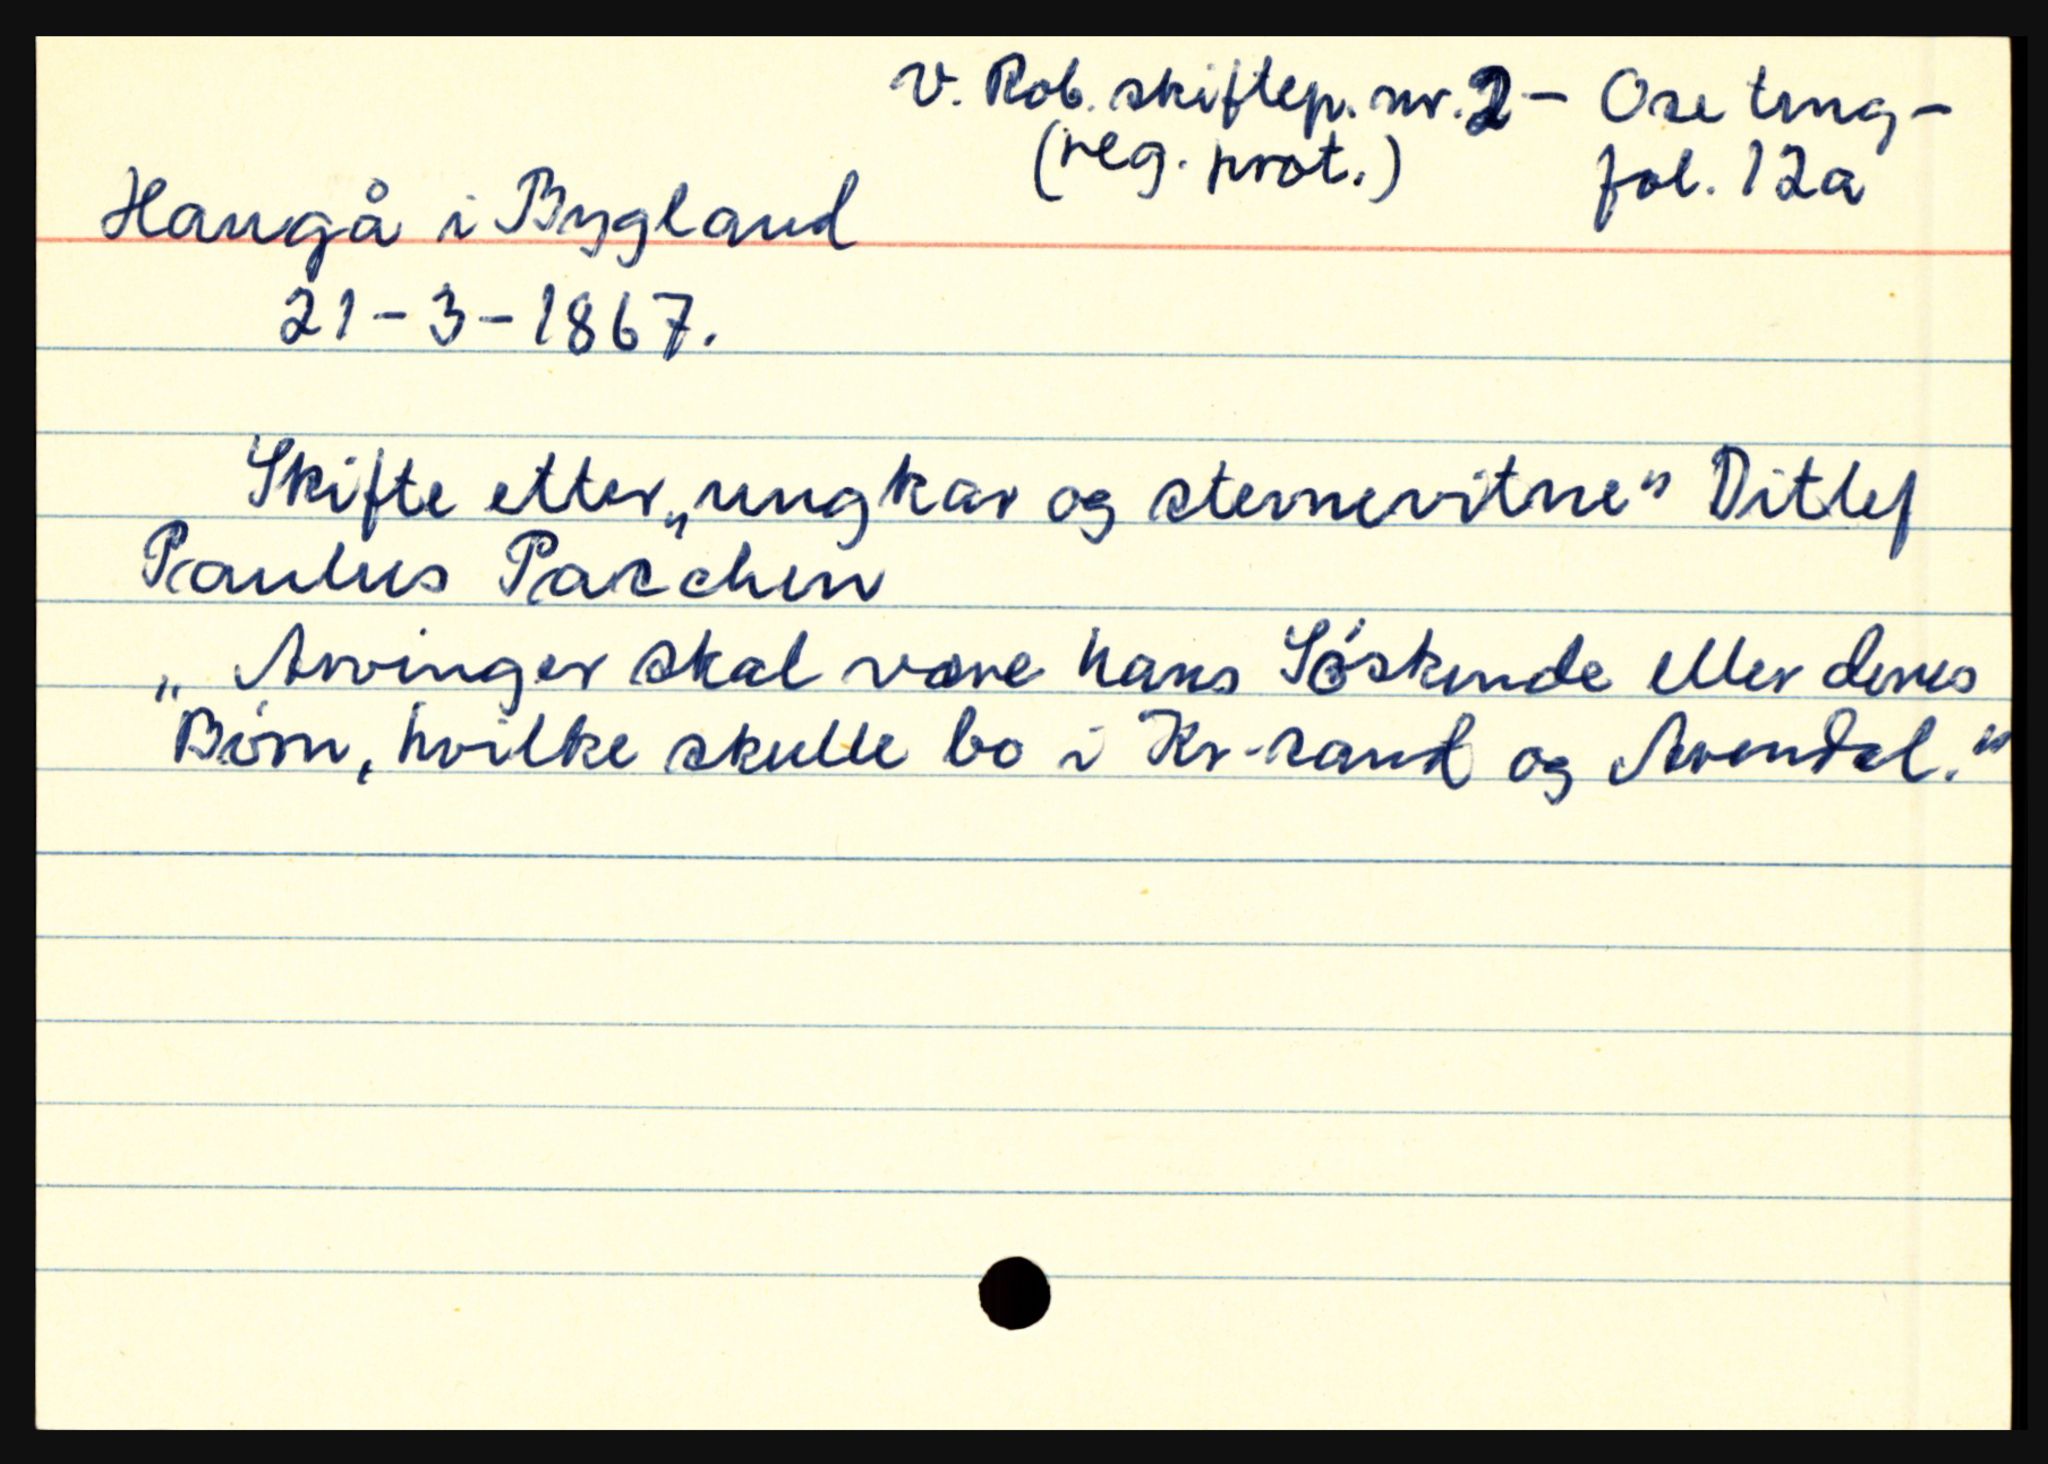 V. Rob. skiftep. nr. 2 - Ose ting -
(reg. prot.) fol. 12a
Haugå i Bygland
21-3-1867.
Skifte etter „ungkar og stevnevitne" Ditlef
Paulus Paschen
„Arvinger skal være hans Söskende eller deres
Börn, hvilke skulle bo i Kr-sand og Arendal."